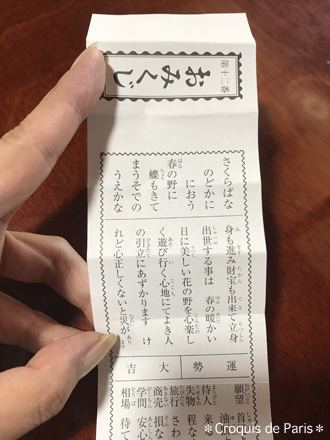 第十二番
おみくじ
さくらばな
のどかに
におう
春の野に
蝶もきて
まうそでの
うえかな
身も進み財宝も出来て立身
出世する事は 春の暖かい
日に美しい花の野を心楽し
く遊び行く心地にてよき人
の引立にあずかります け
れど心正しくないと災があります
運勢 大吉
願望 首 油
待 来
失物 程な
旅行 さわ
商売 損な
学問 安心
相場 待て
＊Croquis de Paris＊